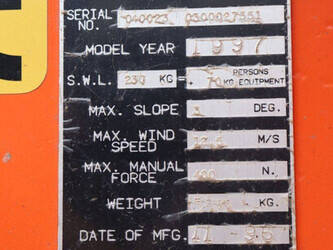 SERIAL NO. 040023 0300027551
MODEL YEAR 1997
S.W.L. 230 KG = PERSONS
70 KG EQUIPMENT
MAX. SLOPE DEG.
MAX. WIND SPEED 12.5 M/S
MAX. MANUAL FORCE 400 N.
WEIGHT KG.
DATE OF MFG. 11